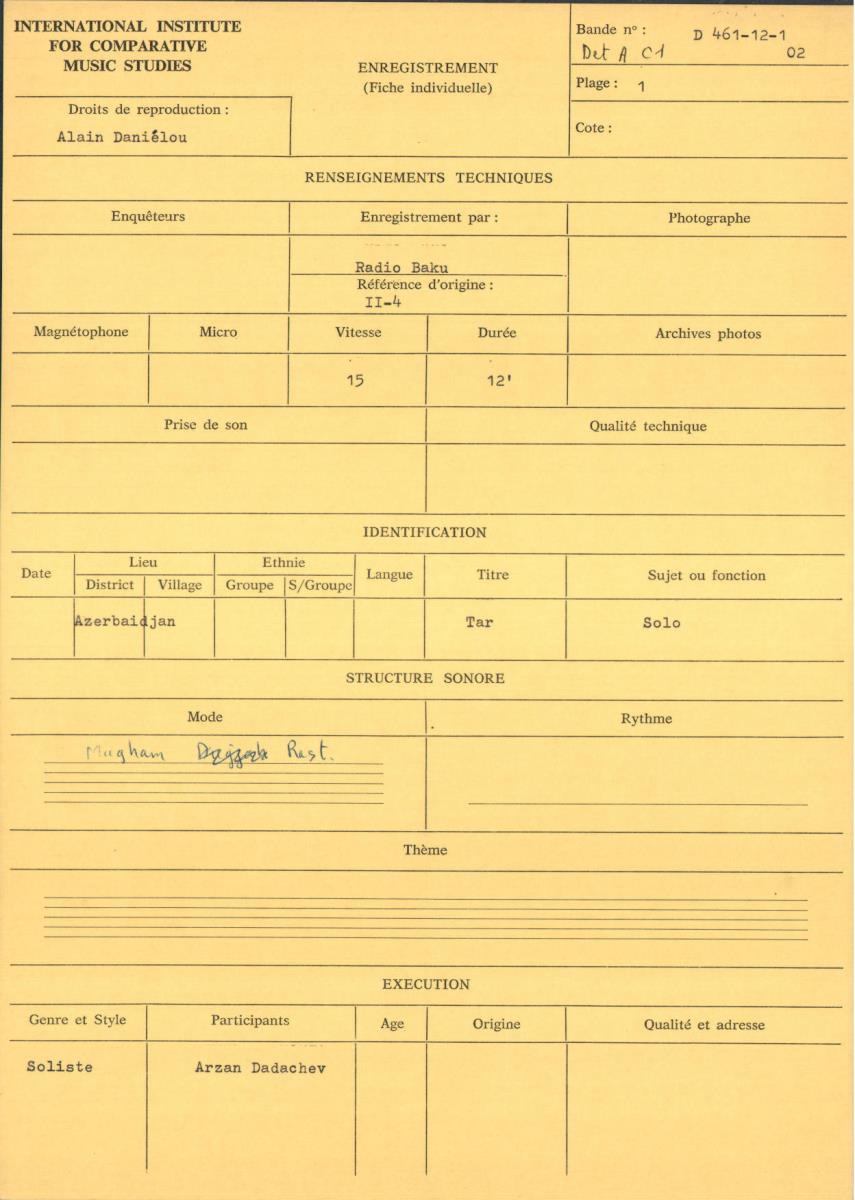 INTERNATIONAL INSTITUTE
FOR COMPARATIVE
MUSIC STUDIES
Droits de reproduction :
Alain Daniélou
ENREGISTREMENT
(Fiche individuelle)
Bande nº : D 461-12-1
Det A C1 02
Plage : 1
Cote :
RENSEIGNEMENTS TECHNIQUES
Enquêteurs
Enregistrement par :
Photographe
Radio Baku
Référence d'origine :
II-4
Magnétophone
Micro
Vitesse
Durée
Archives photos
15
12'
Prise de son
Qualité technique
IDENTIFICATION
Date
Lieu
District
Village
Ethnie
Groupe
S/Groupe
Langue
Titre
Sujet ou fonction
Azerbaidjan
Tar
Solo
STRUCTURE SONORE
Mode
Rythme
Mugham Rast.
Thème
EXECUTION
Genre et Style
Participants
Age
Origine
Qualité et adresse
Soliste
Arzan Dadachev